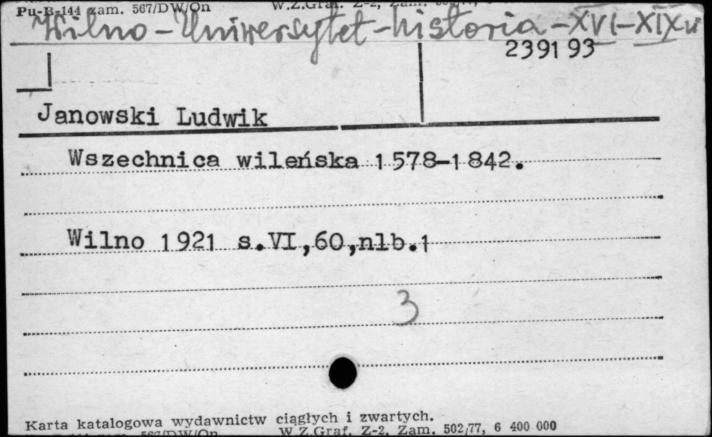 Pu-B-144 zam. 567/DW/On W.Z.Graf. Z-2, Zam.
Wilno - Uniwersytet - historia - XVI-XIX w
2391 93
Janowski Ludwik
Wszechnica wileńska 1578-1842.
Wilno 1921 s.VI,60,nlb.1
3
Karta katalogowa wydawnictw ciągłych i zwartych.
W.Z.Graf. Z-2, Zam. 502/77, 6 400 000